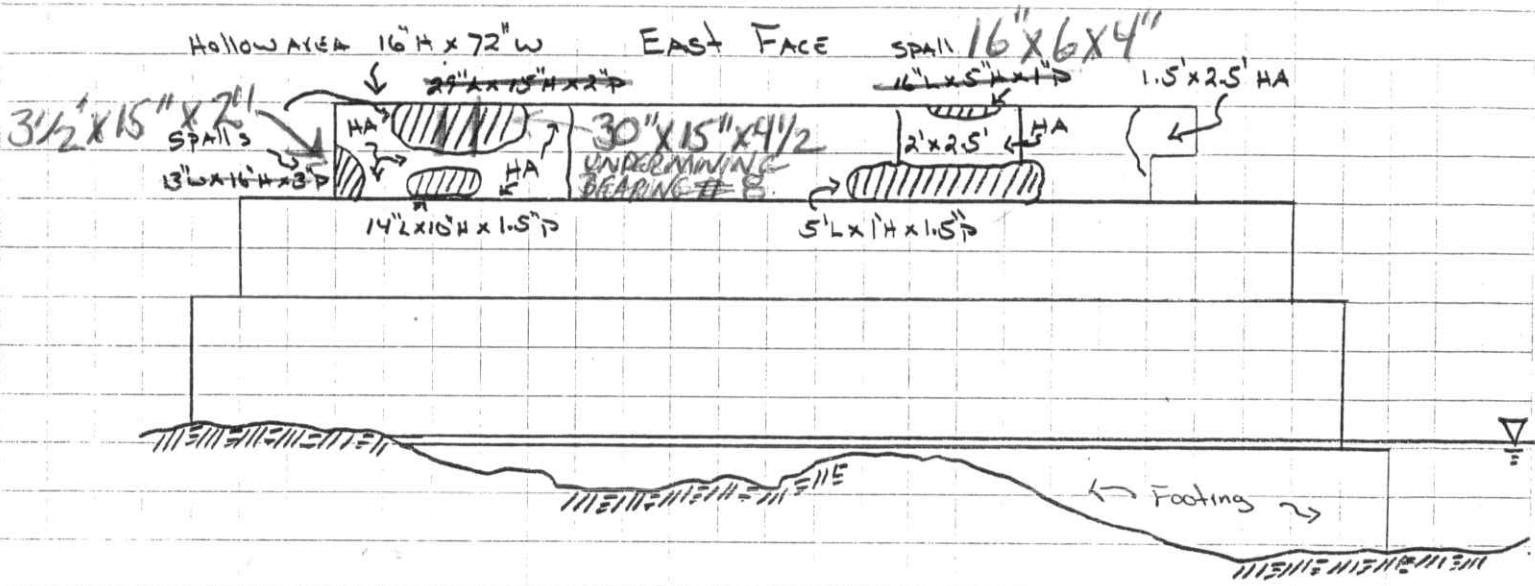 Hollow Area 16"H x 72"W
East Face
Spall 16"x6x4"
29"L x 15"H x 2"P
16"L x 5"H x 1"P
1.5'x2.5' HA
3 1/2' x 15" x 2"
Spalls
13"W x 16"H x 3"P
HA
HA
30"x15"x4 1/2
UNDERMINING
BEARING # 8
2'x2.5'
HA
14"L x 10"H x 1.5"P
5'L x 1'H x 1.5"P
Footing